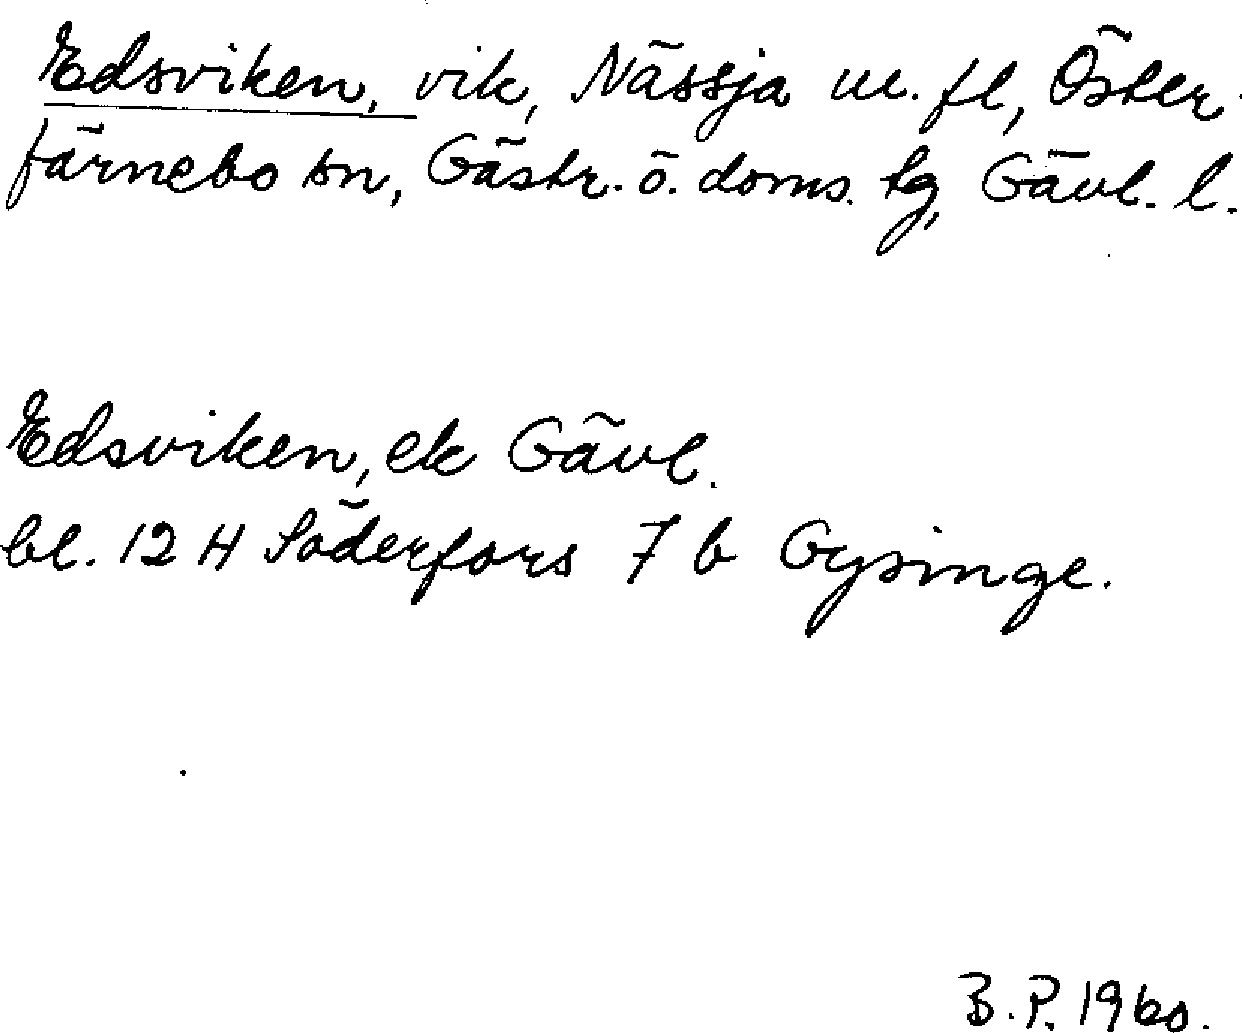 Edsviken, vik, Nässja m. fl, Öster-
färnebo sn, Gästr. ö. doms. tg, Gävl. l.
Edsviken, ek Gävl.
bl. 12 H Söderfors 7 b Gysinge.
B. P. 1960.